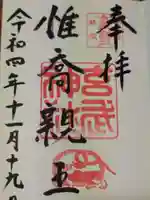 奉拝
惟喬親王
令和四年十一月十九日